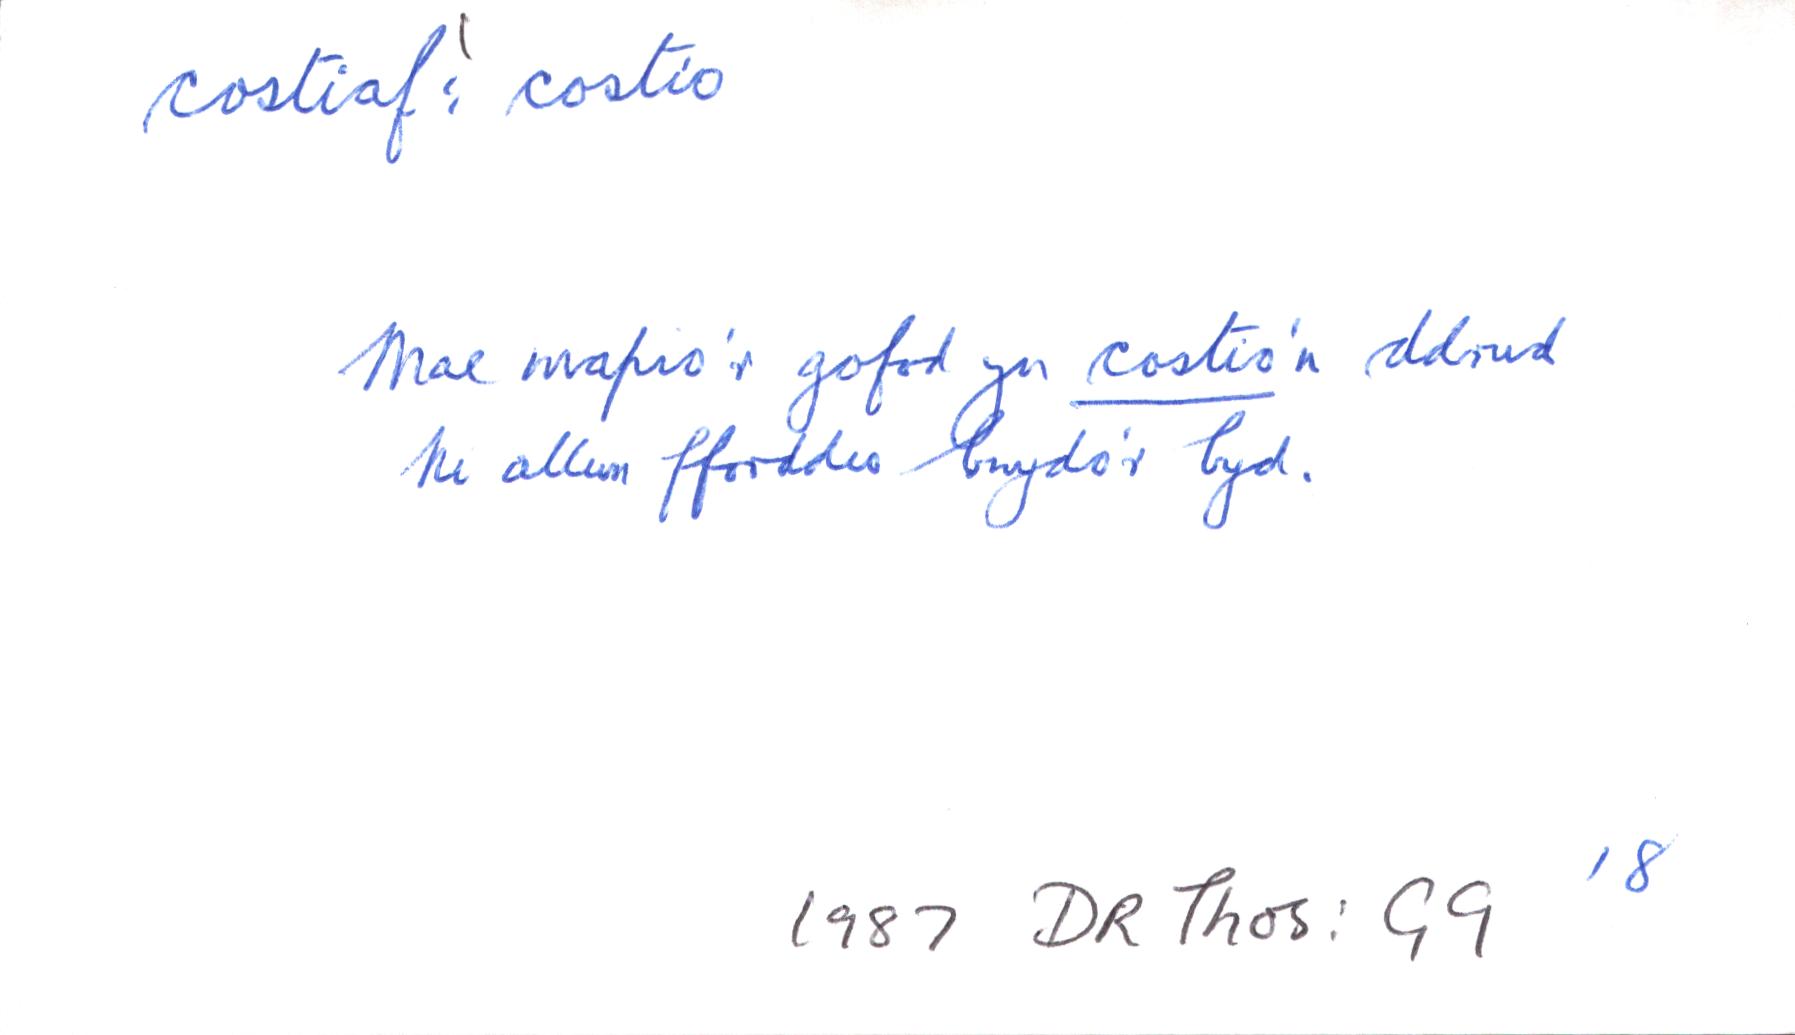 costiaf¹: costio
Mae mapio'r gofod yn costio'n ddrud
Ni allwn fforddio bwydo'r byd.
18
1987 DR Thos: GG